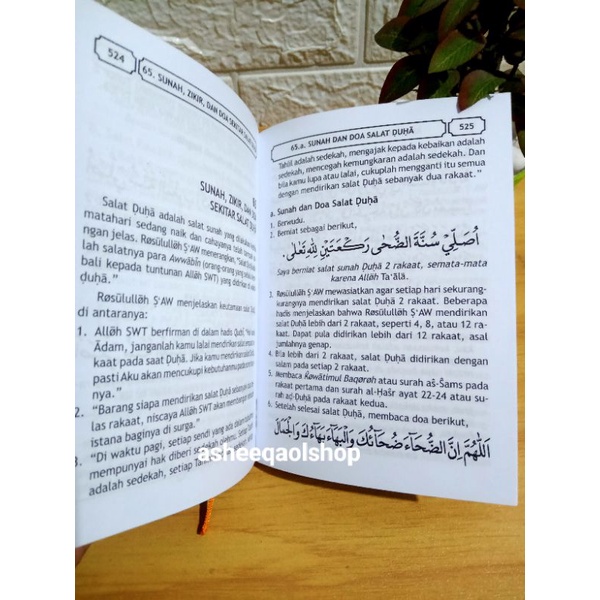 524
65. SUNAH, ZIKIR, DAN DOA SEKITAR SALAT
SUNAH, ZIKIR, DAN DOA
SEKITAR SALAT
Salat Ḍuḥā adalah salat sunah yang dilaksanakan
matahari sedang naik dan cahayanya telah
ngan jelas. Røsūlullōh Ṣ'AW menerangkan,
lah salatnya para Awwābīn (orang-orang yang
bali kepada tuntunan Allōh SWT) yang didirikan
ḍuḥā."
Røsūlullōh Ṣ'AW menjelaskan keutamaan salat
di antaranya:
1. Allōh SWT berfirman di dalam hadis Qudī, "Wahai
Ādam, janganlah kamu lalai mendirikan salat
kaat pada saat Ḍuḥā. Jika kamu mendirikan
pasti Aku akan mencukupi kebutuhanmu pada
nya."
2. "Barang siapa mendirikan salat Ḍuḥā sebanyak dua be-
las rakaat, niscaya Allōh SWT akan membangunkan
istana baginya di surga."
3. "Di waktu pagi, setiap sendi yang ada
mempunyai hak diberi sedekah olehmu. Setiap
adalah sedekah, setiap
65.a. SUNAH DAN DOA SALAT ḌUḤĀ
525
Tahlil adalah sedekah, mengajak kepada kebaikan adalah
sedekah, mencegah kemungkaran adalah sedekah. Dan
bila kamu lupa atau lalai, cukuplah mengganti itu semua
dengan mendirikan salat Ḍuḥā sebanyak dua rakaat.
a. Sunah dan Doa Salat Ḍuḥā
1. Berwudu.
2. Berniat sebagai berikut,
اُصَلِّيْ سُنَّةَ الضُّحٰى رَكْعَتَيْنِ لِلّٰهِ تَعَالٰى.
Saya berniat salat sunah Ḍuḥā 2 rakaat, semata-mata
karena Allōh Ta'ālā.
3. Røsūlullōh Ṣ'AW mewasiatkan agar setiap hari sekurang-
kurangnya mendirikan salat Ḍuḥā 2 rakaat. Beberapa
hadis menjelaskan bahwa Røsūlullōh Ṣ'AW mendirikan sa-
lat Ḍuḥā lebih dari 2 rakaat, seperti 4, 8, atau 12 ra-
kaat. Dapat pula didirikan lebih dari 12 rakaat, asal
jumlahnya genap.
4. Bila lebih dari 2 rakaat, salat Ḍuḥā didirikan dengan
salam pada setiap 2 rakaat.
5. Membaca Ḱawātimul Baqorøh atau surah aš-Šams pada
rakaat pertama dan surah al-Ḥašr ayat 22-24 atau su-
rah aḍ-Ḍuḥā pada rakaat kedua.
6. Setelah selesai salat Ḍuḥā, membaca doa berikut,
اَللّٰهُمَّ اِنَّ الضُّحَآءَ ضُحَآئُكَ وَالْبَهَآءَ بَهَآءُكَ وَالْجَمَالَ
asheeqaolshop